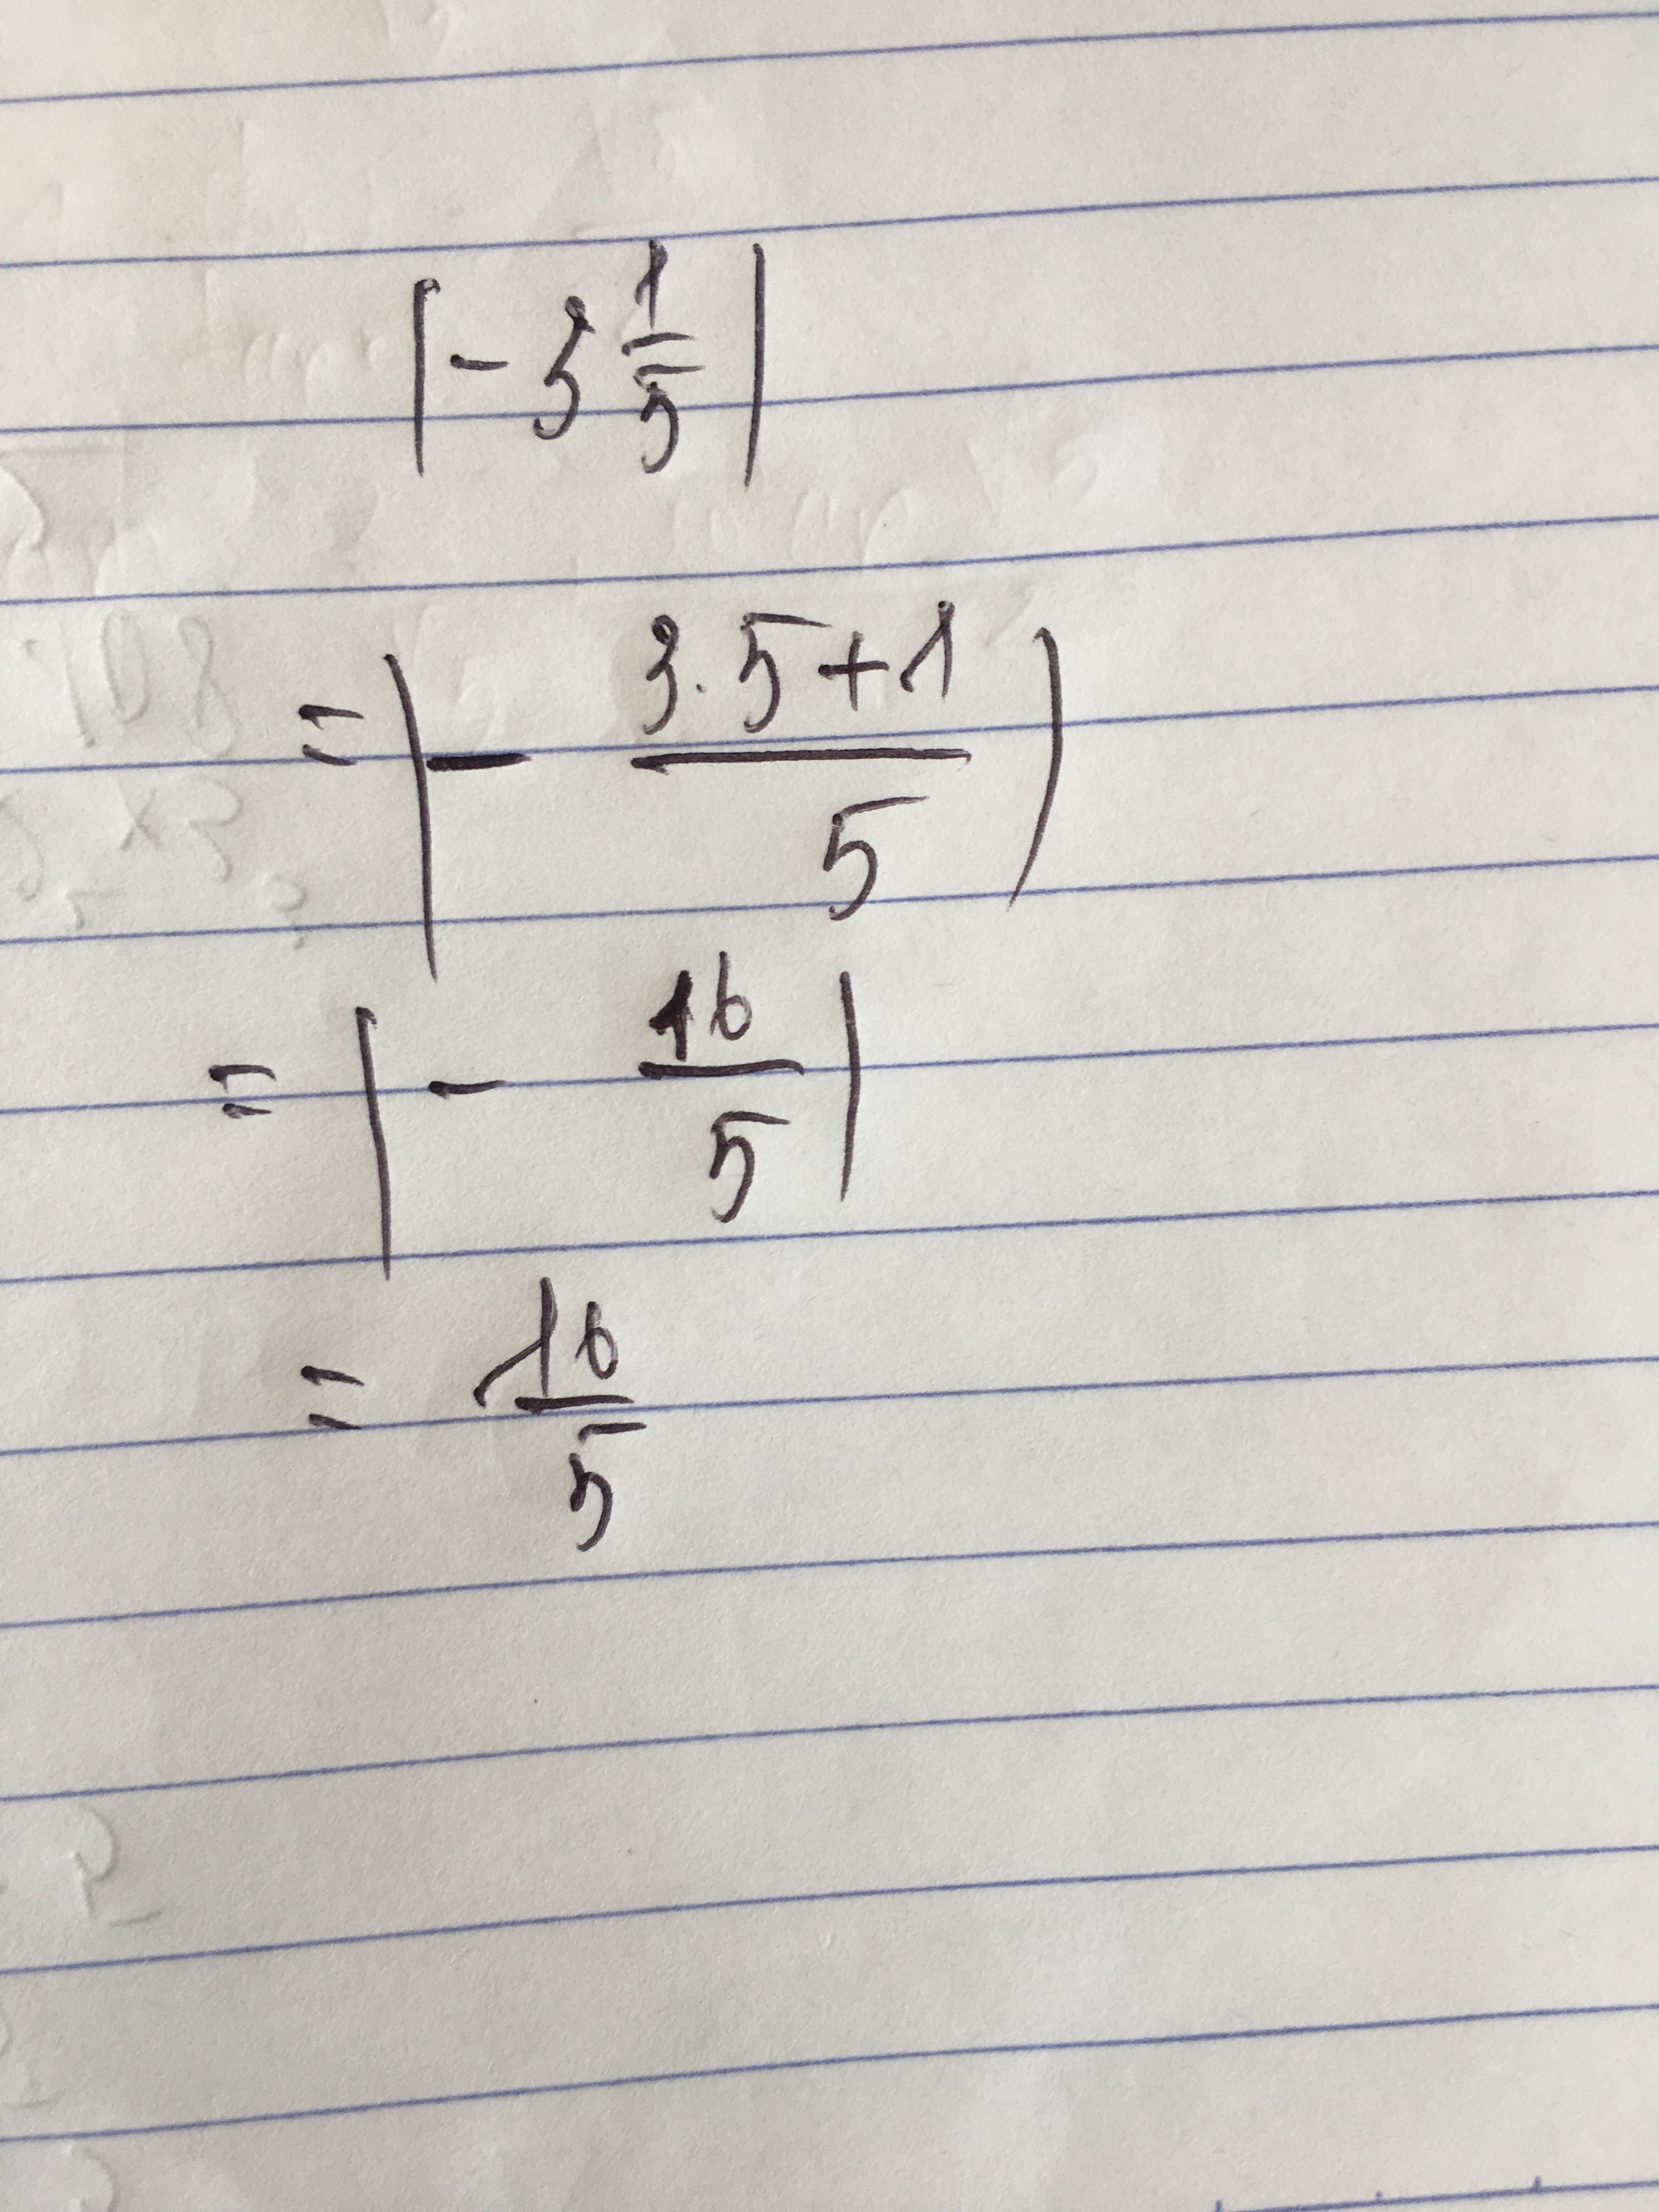 |-3 1/5|
= |- (3.5+1)/5|
= |- 16/5|
= 16/5